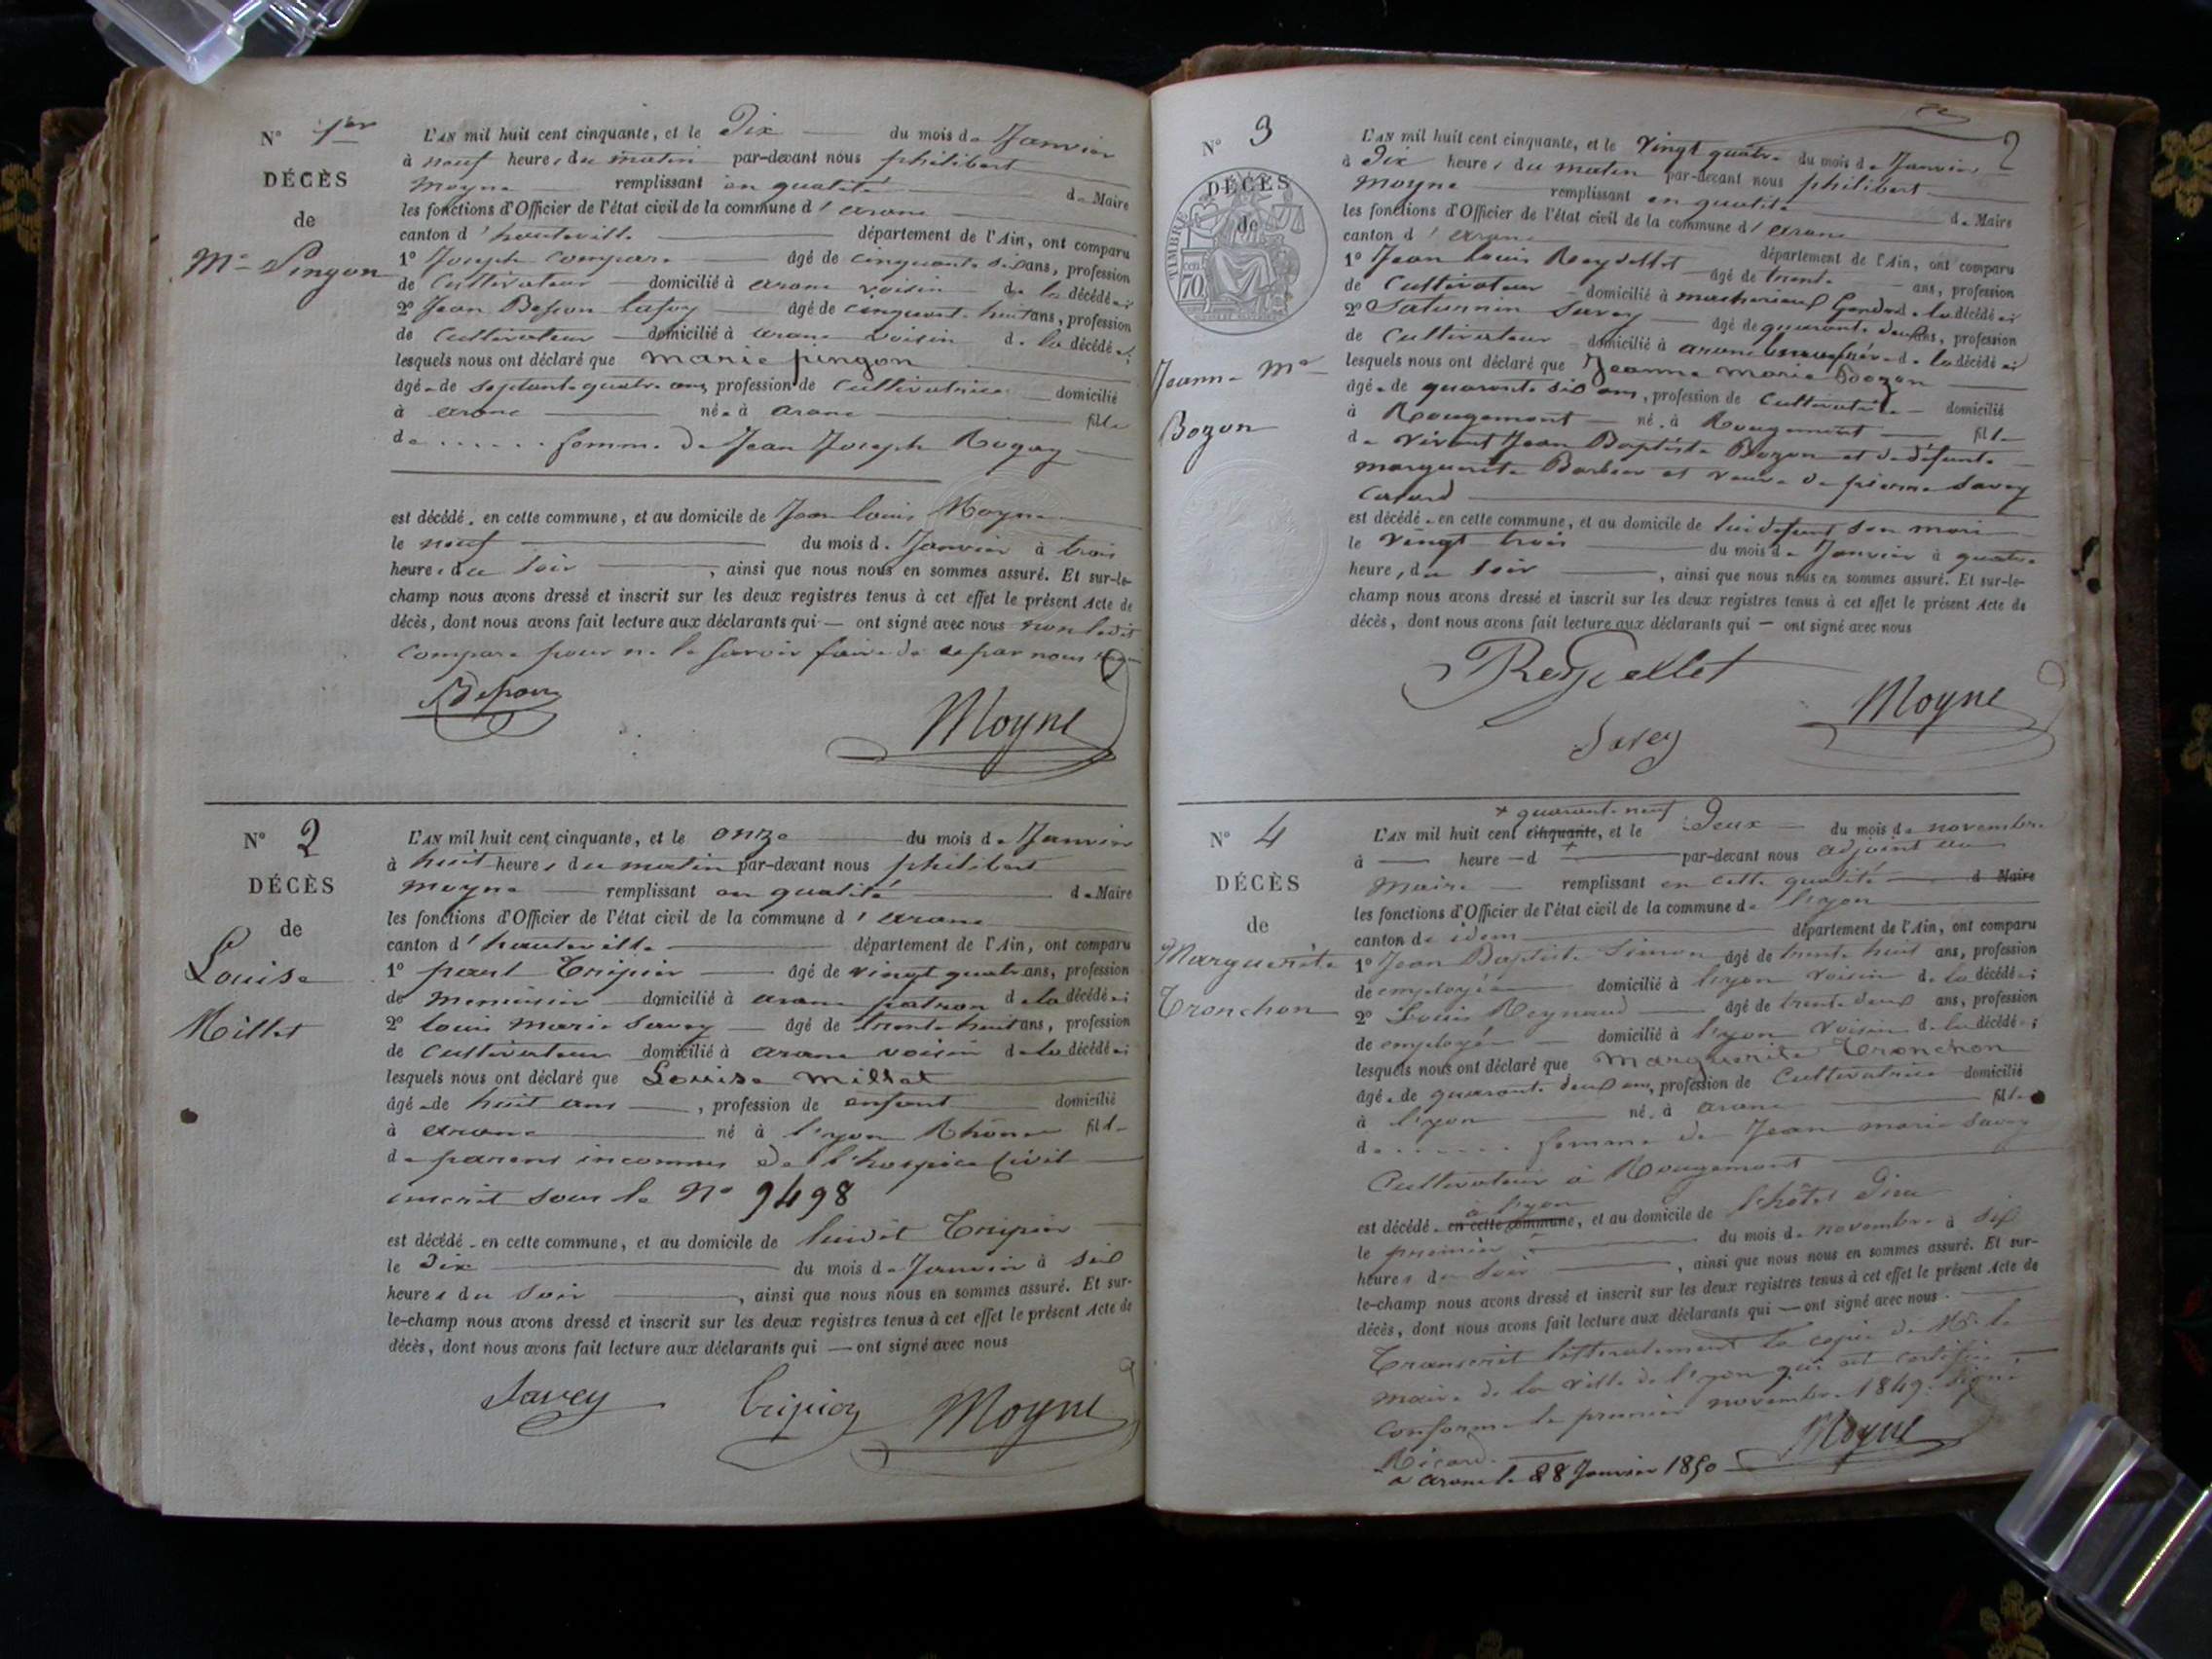 N° 1er
DÉCÈS
de
Me Pingon
L'AN mil huit cent cinquante, et le Dix du mois de Janvier
à neuf heures du matin par-devant nous philibert
Moyne remplissant en qualité de Maire
les fonctions d'Officier de l'état civil de la commune d'arane
canton d'hauteville département de l'Ain, ont comparu
1° Joseph Compare âgé de cinquante six ans, profession
de Cultivateur domicilié à arane voisin de la décédée;
2° Jean Besson lafoy âgé de cinquante huit ans, profession
de Cultivateur domicilié à arane voisin de la décédée;
lesquels nous ont déclaré que marie pingon
âgée de septante quatre ans, profession de Cultivatrice domicilié
à arane née à arane fille
de ...... femme de Jean Joseph Rogay
est décédé. en cette commune, et au domicile de Jean louis Moyne
le neuf du mois de Janvier à trois
heures du soir, ainsi que nous nous en sommes assuré. Et sur-le-
champ nous avons dressé et inscrit sur les deux registres tenus à cet effet le présent Acte de
décès, dont nous avons fait lecture aux déclarants qui — ont signé avec nous non ledit
Compare pour ne le savoir faire de ce par nous
Besson
Moyne
N° 2
DÉCÈS
de
Louise
Millet
L'AN mil huit cent cinquante, et le onze du mois de Janvier
à huit heures du matin par-devant nous philibert
moyne remplissant en qualité de Maire
les fonctions d'Officier de l'état civil de la commune d'arane
canton d'hauteville département de l'Ain, ont comparu
1° paul Tripier âgé de vingt quatre ans, profession
de menuisier domicilié à arane patron de la décédée;
2° louis marie Savey âgé de trente huit ans, profession
de Cultivateur domicilié à arane voisin de la décédée;
lesquels nous ont déclaré que Louise millet
âgée de huit ans, profession de enfant domicilié
à arane né à l'yon Rhône fille
de parens inconnus de l'hospice Civil
inscrit sous le N° 9498
est décédée en cette commune, et au domicile de luidit Tripier
le Dix du mois de Janvier à six
heures du soir, ainsi que nous nous en sommes assuré. Et sur-
le-champ nous avons dressé et inscrit sur les deux registres tenus à cet effet le présent Acte de
décès, dont nous avons fait lecture aux déclarants qui — ont signé avec nous
Savey Tripier Moyne
2
N° 3
TIMBRE
70
DÉCÈS
de
Jeanne Me
Bozon
L'AN mil huit cent cinquante, et le vingt quatre du mois de Janvier
à Dix heures du matin par-devant nous philibert
moyne remplissant en qualité de Maire
les fonctions d'Officier de l'état civil de la commune d'arane
canton d'arane département de l'Ain, ont comparu
1° Jean louis Reydellet âgé de trente ans, profession
de Cultivateur domicilié à de la décédée;
2° Saturnin Savey âgé de quarante deux ans, profession
de Cultivateur domicilié à arane beaufrère de la décédée;
lesquels nous ont déclaré que Jeanne marie Bozon
âgée de quarante six ans, profession de Cultivatrice domicilié
à Rougemont né. à Rougemont fille
de vivant Jean Baptiste Bozon et de défunte
marguerite Barbier et veuve de pierre Savey
est décédée en cette commune, et au domicile de lui défunt son mari
le vingt trois du mois de Janvier à quatre
heures du soir, ainsi que nous nous en sommes assuré. Et sur-le-
champ nous avons dressé et inscrit sur les deux registres tenus à cet effet le présent Acte de
décès, dont nous avons fait lecture aux déclarants qui — ont signé avec nous
Reydellet
Savey
Moyne
N° 4
DÉCÈS
de
Marguerite
Tronchon
+ quarante neuf
L'AN mil huit cent cinquante, et le Deux du mois de novembre
à — heure — d — par-devant nous adjoint au
Maire remplissant en cette qualité d Maire
les fonctions d'Officier de l'état civil de la commune de l'yon
canton de idem département de l'Ain, ont comparu
1° Jean Baptiste Simon âgé de trente huit ans, profession
de employé domicilié à l'yon voisin de la décédée;
2° Louis Reynaud âgé de trente deux ans, profession
de employé domicilié à l'yon voisin de la décédée;
lesquels nous ont déclaré que Marguerite Tronchon
âgée de quarante deux ans, profession de Cultivatrice domicilié
à l'yon né. à arane fille
de ....... femme de Jean marie Savey
Cultivateur à Rougemont
à l'yon
est décédée en cette commune, et au domicile de l'hôtel Dieu
le premier du mois de novembre à six
heures du soir, ainsi que nous nous en sommes assuré. Et sur-
le-champ nous avons dressé et inscrit sur les deux registres tenus à cet effet le présent Acte de
décès, dont nous avons fait lecture aux déclarants qui — ont signé avec nous.
Transcrit littéralement la copie de Mr le
maire de la ville de l'yon qui est certifiée
Conforme le premier novembre 1849. signé
Ricard.
Moyne
a arane le 28 Janvier 1850